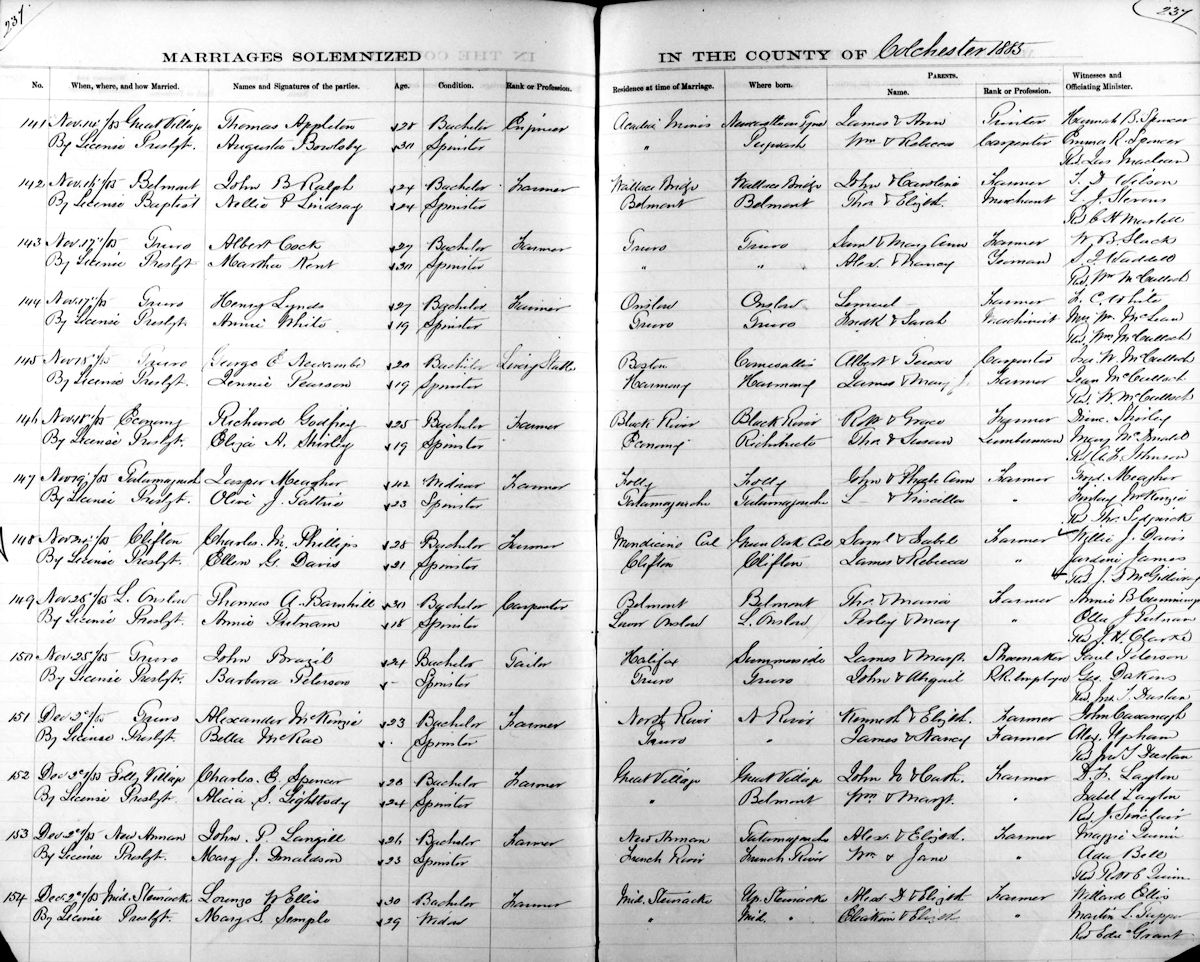 237
237
MARRIAGES SOLEMNIZED IN THE COUNTY OF Colchester 1885
No. When, where, and how Married. Names and Signatures of the parties. Age. Condition. Rank or Profession. Residence at time of Marriage. Where born. PARENTS. Name. Rank or Profession. Witnesses and Officiating Minister.
141 Nov. 14th/85 Great Village Thomas Appleton 28 Bachelor Engineer Acadia Mines Newcastle on Tyne James & Ann Hannah B. Spencer
By License Presbyt. Augusta Bowlsby Spinster " Pugwash Wm & Rebecca Carpenter Emma R. Spencer
Rev. Jas Maclean
142 Nov. 16th/85 Belmont John B Ralph 24 Bachelor Farmer Wallace Bridge Wallace Bridge John & Caroline Farmer Wilson
By License Baptist Nellie P Lindsay 24 Spinster Belmont Belmont Thos & Elizth. Merchant L. J. Stevens
Rev C H Martell
143 Nov. 17th/85 Truro Albert Cock 27 Bachelor Farmer Truro Truro Saml & Mary Ann Farmer W. B. Slack
By License Presbyt Martha Kent Spinster " " Alex. & Nancy Yeoman Waddell
Rev. Wm McCulloch
144 Nov. 17th/85 Truro Henry Lynds 27 Bachelor Farmer Onslow Onslow Lemuel Farmer L. C. White
By License Presbyt. Annie White 19 Spinster Truro Truro Fredk & Sarah Machinist Wm. McLean
Rev. Wm McCulloch
145 Nov 18th/85 Truro George E Newcombe 20 Bachelor Livery Stable Boston Cornwallis Albert & Carpenter W. McCulloch
By License Presbyt. Jennie Pearson 19 Spinster Harmony Harmony James & Mary J. Farmer Jean McCulloch
Rev. W McCulloch
146 Nov 18th/85 Economy Richard Godfrey 25 Bachelor Farmer Black River Black River Robt & Grace Farmer Shirley
By License Presbyt. Eliza A. Shirley 19 Spinster Economy Richibucto Thos & Susan Lumberman Mary McDonald
Rev. A. L. Johnson
147 Nov 19th/85 Tatamagouche Jasper Meagher 42 Widower Farmer Folly Folly John & Farmer Meagher
By License Presbyt. Olive J. Pattrie 23 Spinster Tatamagouche Tatamagouche L & Priscilla " McKenzie
Rev Thos. Sedgwick
148 Clifton Charles M. Phillips 28 Bachelor Farmer Mendicino Cal Green Oak Col Saml & Isabel Farmer Wyllie J. Davis
By License Presbyt. Ellen G. Davis 21 Spinster Clifton Clifton James & Rebecca " James
Rev. J. McGillivray
149 Nov 25th/85 L. Onslow Thomas A. Barnhill 30 Bachelor Carpenter Belmont Belmont Thos & Maria Farmer Annie B Cummings
By License Presbyt. Annie Putnam 18 Spinster Lower Onslow L. Onslow Perley & Mary " Olla J Putnam
Rev J. H. Clarke
150 Nov. 25th/85 Truro John Brazil 24 Bachelor Tailor Halifax Summerside James & Margt. Shoemaker Paul Peterson
By License Presbyt. Barbara Peterson - Spinster Truro Truro John & Abigail R.R. employee Geo. Dakens
Rev Jno. J. Dustan
151 Dec 2nd/85 Truro Alexander McKenzie 23 Bachelor Farmer North River N River Kenneth & Elizth. Farmer John Cavanagh
By License Presbyt. Bella McRae - Spinster Truro " James & Nancy Farmer Alex. Upham
Rev Jno J Dustan
152 Dec 2nd/85 Folly Village Charles E. Spencer 28 Bachelor Farmer Great Village Great Village John N & Cath. Farmer D. F. Layton
By License Presbyt. Alicia S. Lightbody 24 Spinster " Belmont Wm & Margt. " Isabel Layton
Rev. J. Sinclair
153 Dec 2nd/85 New Annan John P. Langill 26 Bachelor Farmer New Annan Tatamagouche Alex. & Elizth. Farmer Maggie Quinn
By License Presbyt. Mary J. Donaldson 23 Spinster French River French River Wm & Jane " Ada Bell
Rev. Quinn
154 Dec. 2nd/85 Mid. Stewiacke Lorenzo W Ellis 30 Bachelor Farmer Mid. Stewiacke Up. Stewiacke Alexd D & Elizth Farmer Willard Ellis
By License Presbyt. Mary L. Semple 29 Widow " Mid. " Eliakim & Elizth. " Martin L. Tupper
Rev Edw Grant